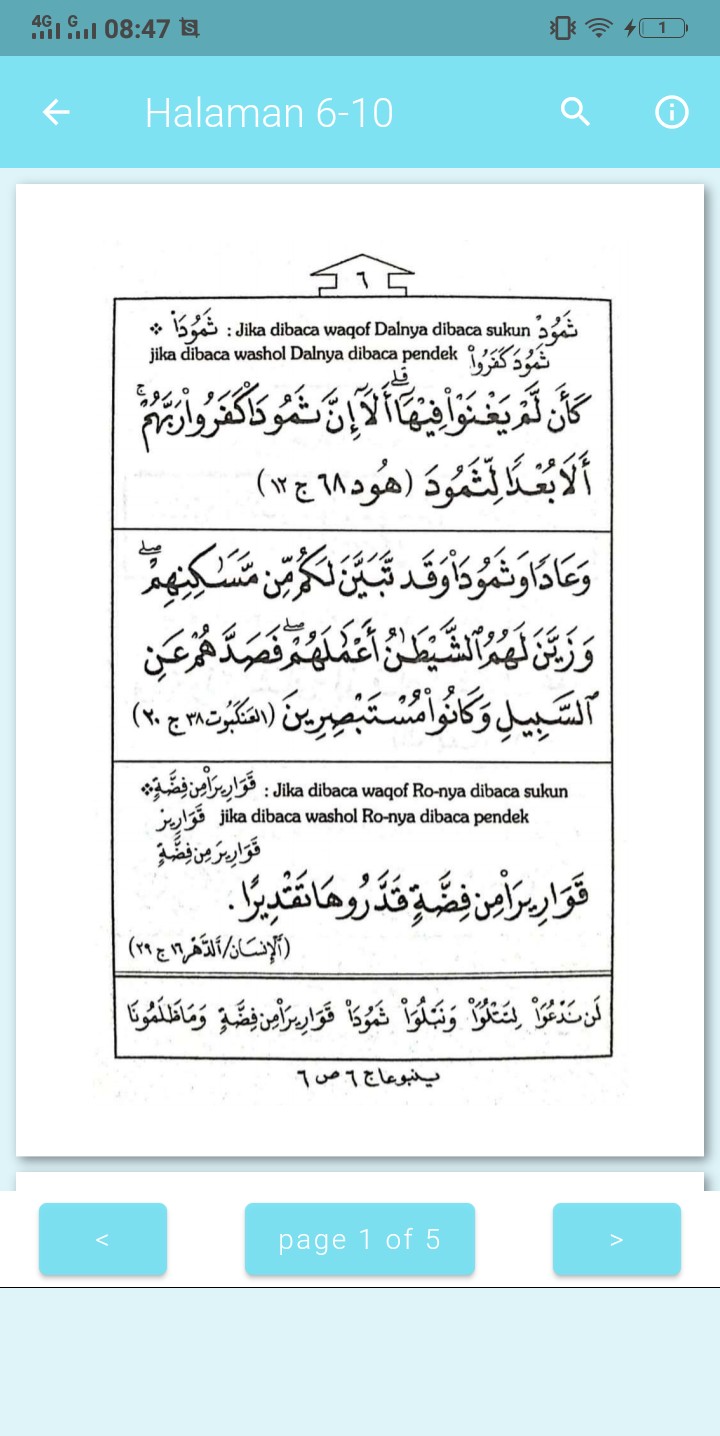 4G G 08:47 1
Halaman 6-10
٦
❖ ثَمُودَا۟ : Jika dibaca waqof Dalnya dibaca sukun ثَمُودْ
jika dibaca washol Dalnya dibaca pendek ثَمُودَ كَفَرُوا۟
كَأَن لَّمْ يَغْنَوْا۟ فِيهَآ ۗ أَلَآ إِنَّ ثَمُودَا۟ كَفَرُوا۟ رَبَّهُمْ ۚ
أَلَا بُعْدًا لِّثَمُودَ (هُود ٦٨ ج ١٢)
وَعَادًا وَثَمُودَا۟ وَقَد تَّبَيَّنَ لَكُم مِّن مَّسَـٰكِنِهِمْ ۖ
وَزَيَّنَ لَهُمُ ٱلشَّيْطَـٰنُ أَعْمَـٰلَهُمْ ۖ فَصَدَّهُمْ عَنِ
ٱلسَّبِيلِ وَكَانُوا۟ مُسْتَبْصِرِينَ (العنكبوت ٣٨ ج ٢٠)
❖ قَوَارِيرَا۟ مِن فِضَّةٍ : Jika dibaca waqof Ro-nya dibaca sukun
قَوَارِيرْ jika dibaca washol Ro-nya dibaca pendek
قَوَارِيرَ مِن فِضَّةٍ
قَوَارِيرَا۟ مِن فِضَّةٍ قَدَّرُوهَا تَقْدِيرًا .
(اَلْإِنسَان/اَلدَّهْر ١٦ ج ٢٩)
لَن نَدْعُوَا۟ لِتَتْلُوَا۟ وَنَبْلُوَا۟ ثَمُودَا۟ قَوَارِيرَا۟ مِن فِضَّةٍ وَمَا ظَلَمُونَا
ينبوعا ج ٦ ص ٦
< page 1 of 5 >